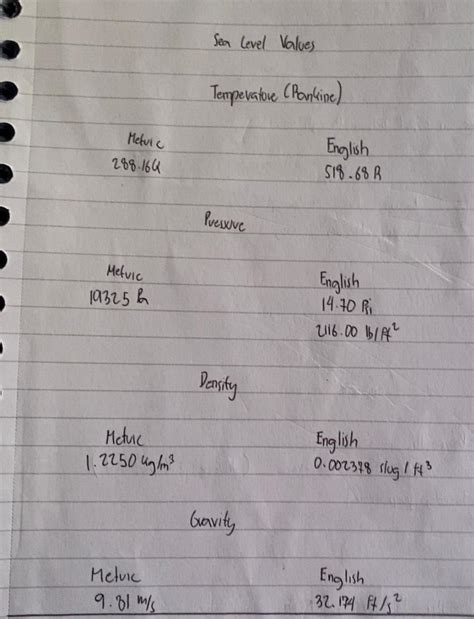 Sea Level Values
Temperature (Rankine)
Metric English
288.16K 518.68 R
Pressure
Metric English
19325 Pa 14.70 Psi
2116.00 lb/ft²
Density
Metric English
1.2250 kg/m³ 0.002378 slug / ft³
Gravity
Metric English
9.81 m/s 32.174 ft/s²